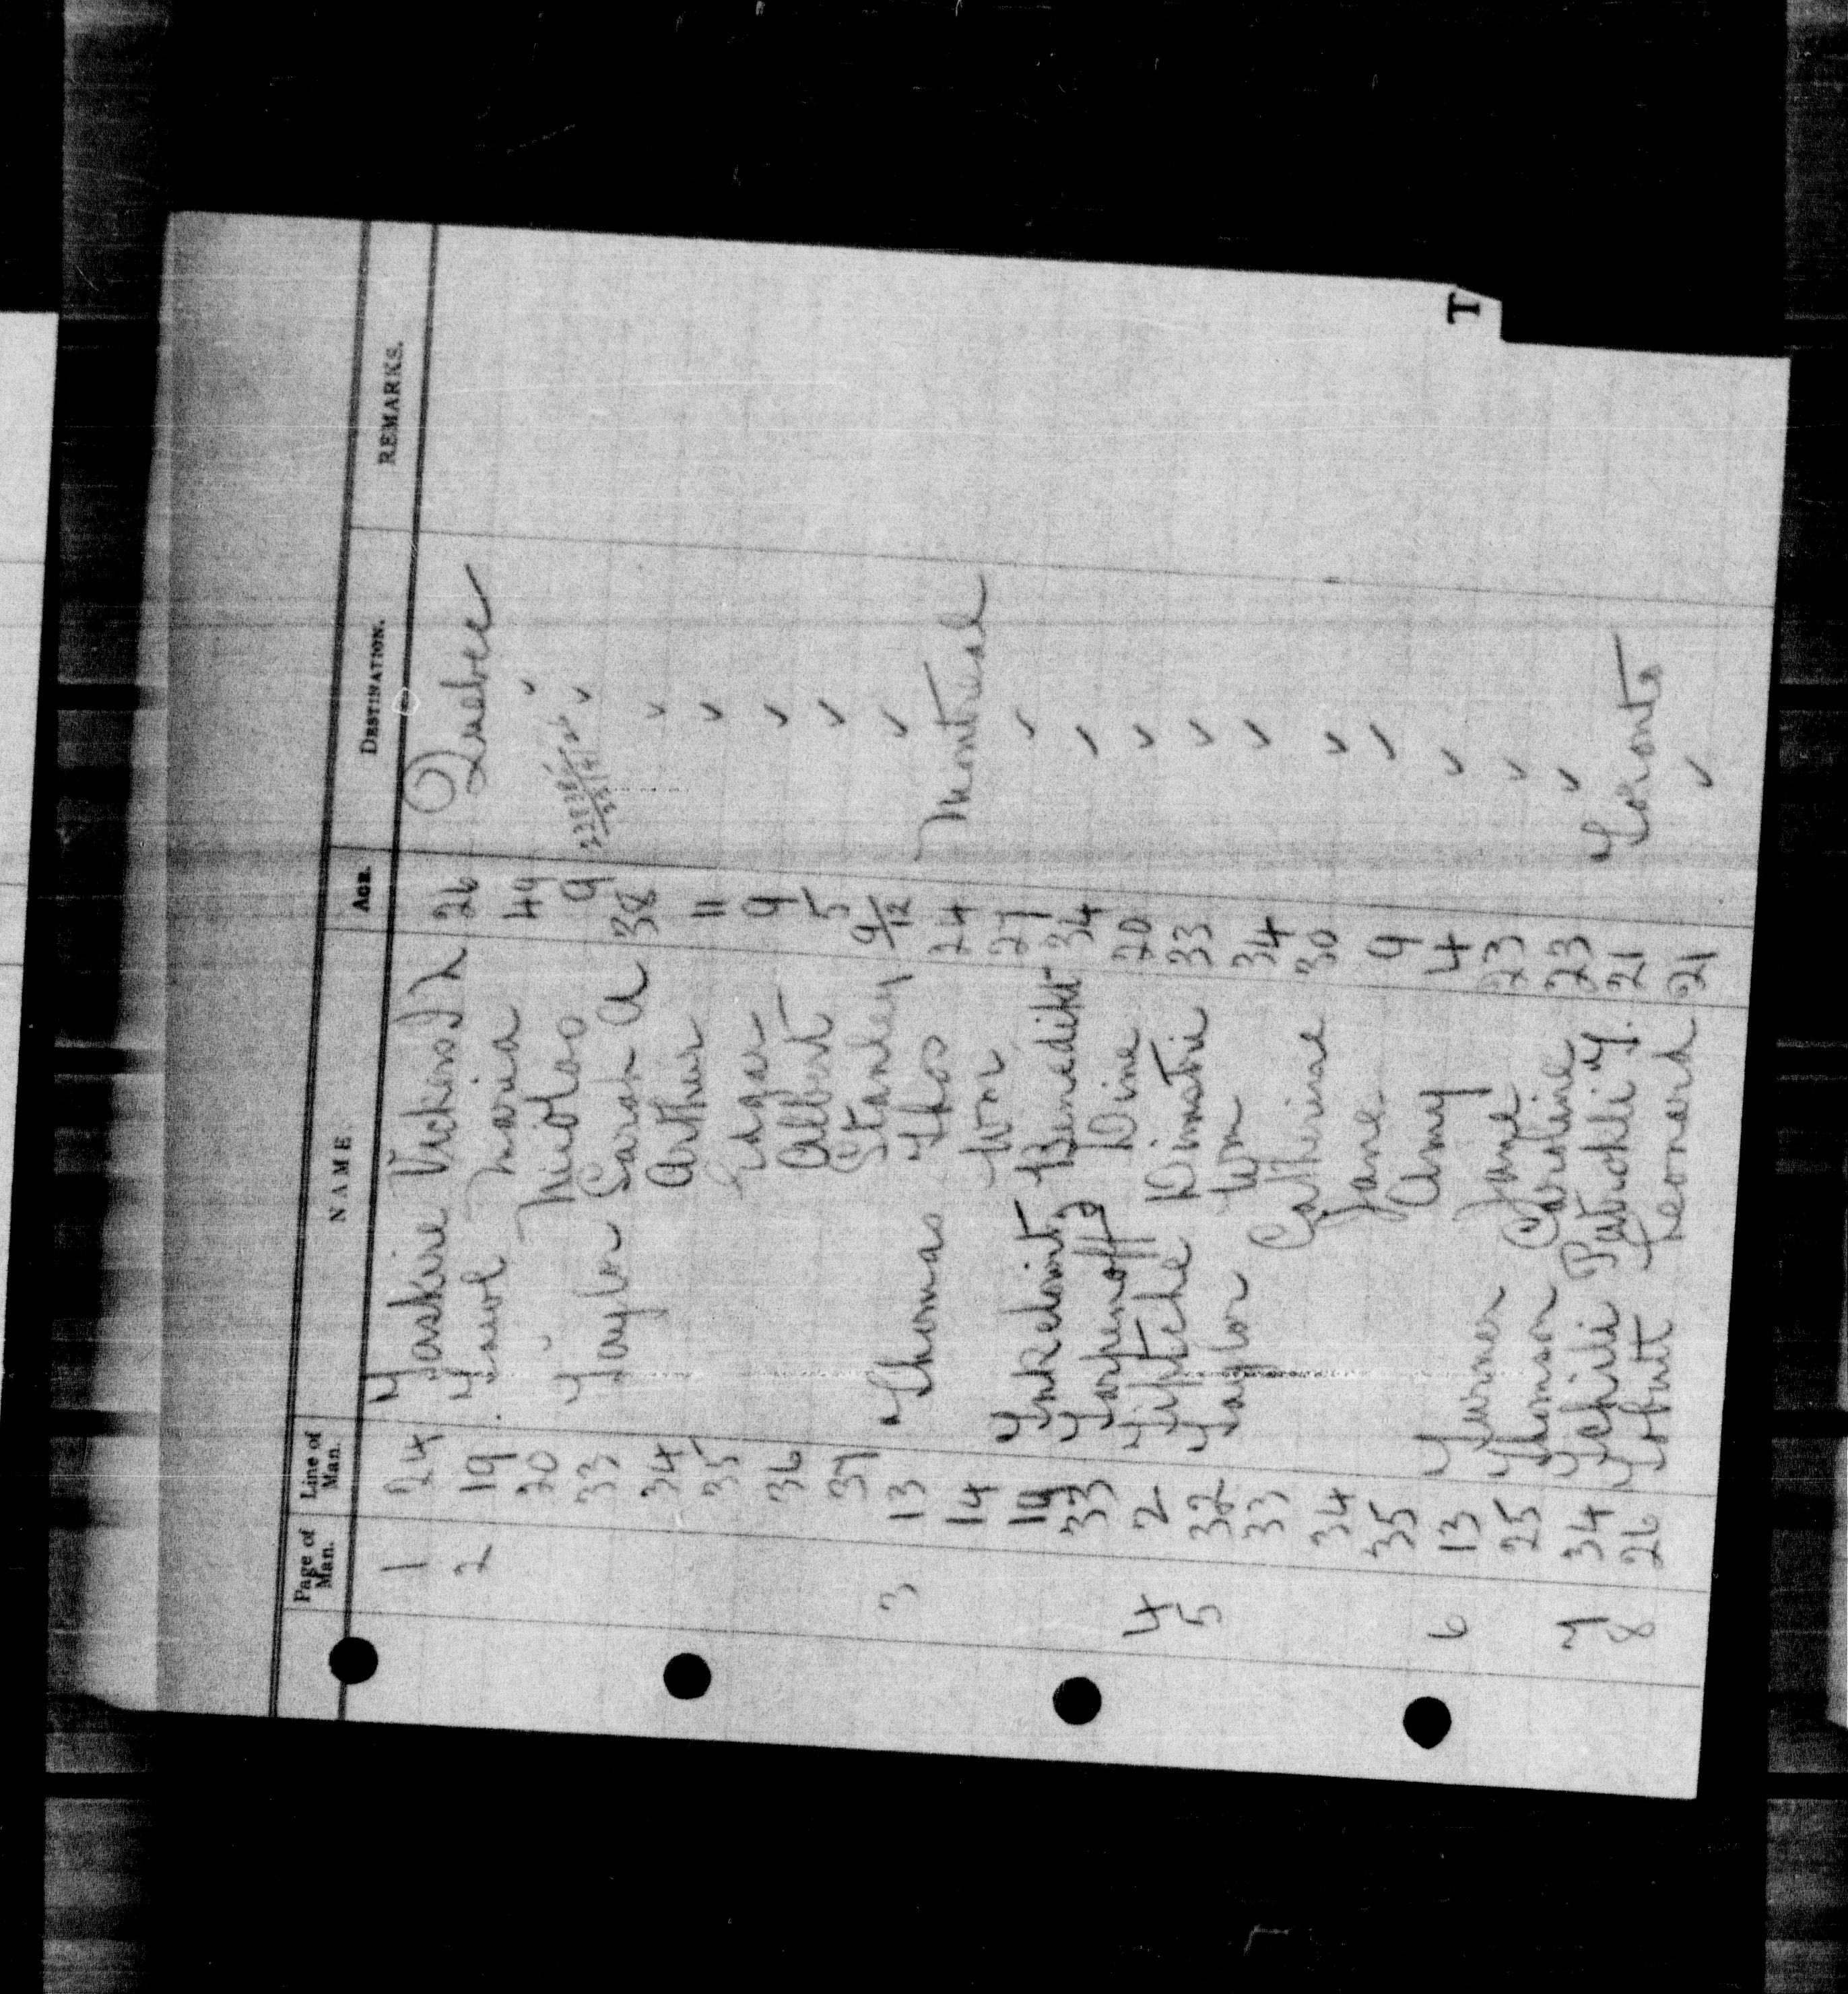 T
Page of Man. Line of Man. NAME. AGE. DESTINATION. REMARKS.
1 24 Taskire 26 Quebec
2 19 Maria 44 ✓
20 Nicolas 9 ✓
33 Taylor Sarah A 38 ✓
34 Arthur 11 ✓
35 Edgar 9 ✓
36 Albert 5 ✓
37 Stanley 9/12 ✓
3 13 Thomas Thos 24 Montreal
14 Wm 27 ✓
Benedikt 34 ✓
33 Dine 20 ✓
4 2 Dimitri 33 ✓
5 32 Taylor Wm 34 ✓
33 Catherine 30 ✓
34 Jane 9 ✓
35 Amy 4 ✓
6 13 Turner Jane 23 ✓
25 Thomson Caroline 23 ✓
7 34 21 Toronto
8 26 Tobutt Leonard 21 ✓